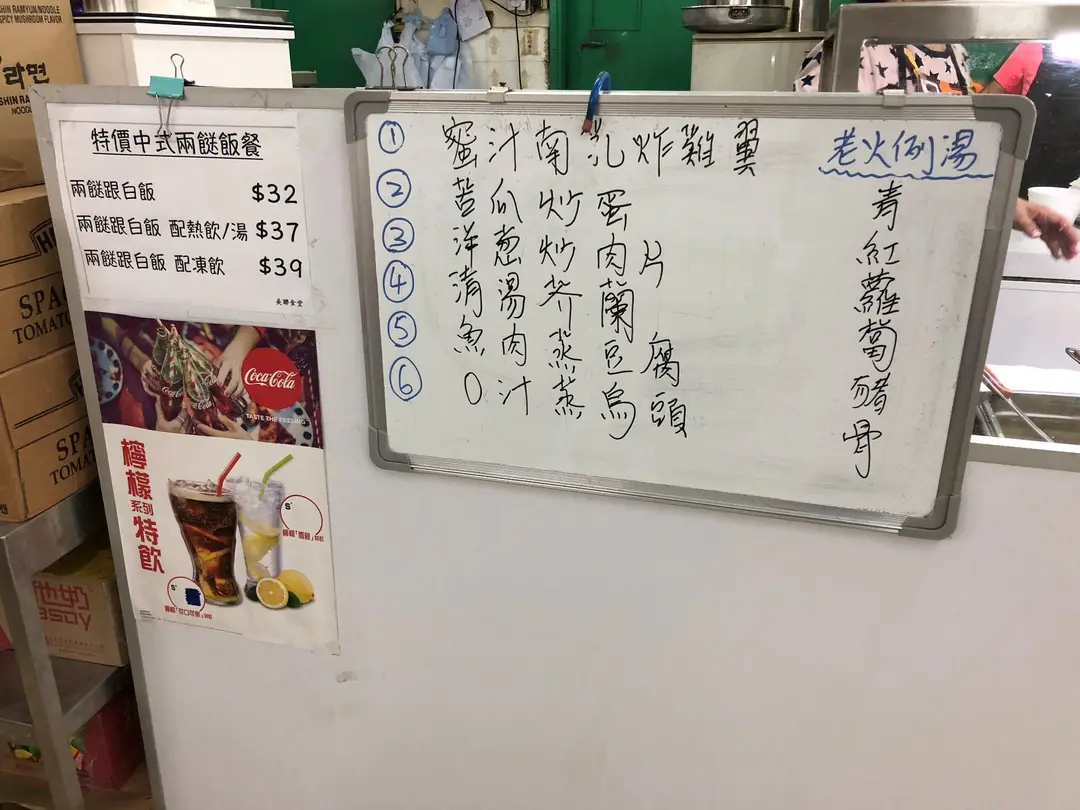 SHIN RAMYUN/NOODLE
SPICY MUSHROOM FLAVOR
라면
SHIN RAM
NOOD
特價中式兩餸飯餐
兩餸跟白飯 $32
兩餸跟白飯 配熱飲/湯 $37
兩餸跟白飯 配凍飲 $39
美聯食堂
① 蜜汁南乳炸雞翼
② 苦瓜炒蛋
③ 洋葱炒肉片
④ 清湯芥蘭
⑤ 魚肉蒸豆腐
⑥ O汁蒸烏頭
老火例湯
青紅蘿蔔豬骨
Coca-Cola
TASTE THE FEELING
檸檬系列特飲
SPA
TOMATO
SPA
TOMA
池奶